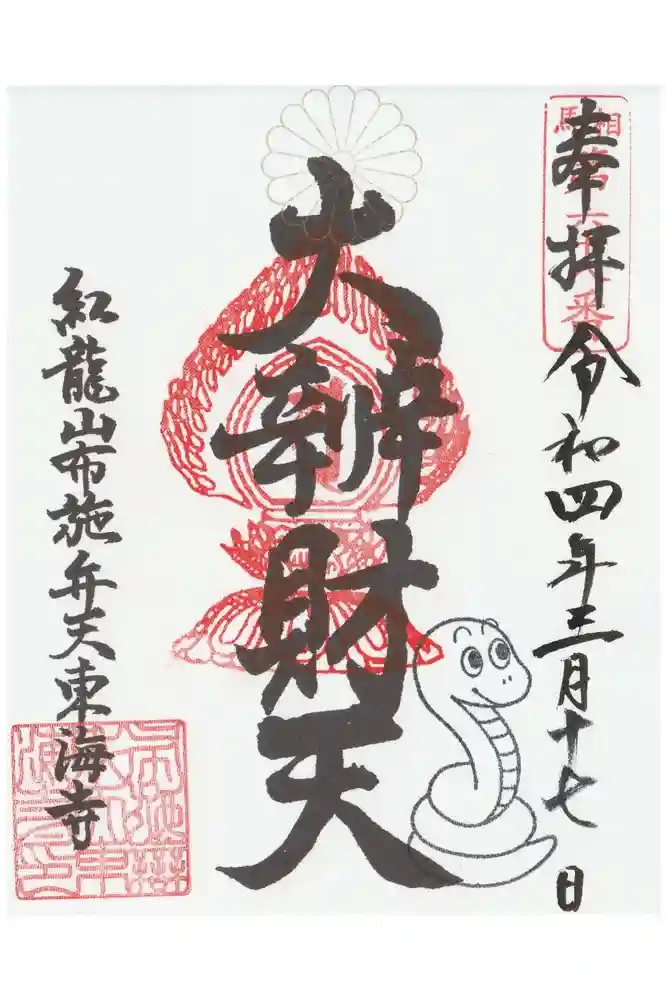 奉拝 令和四年三月十七日
相馬
大辨財天
紅龍山布施弁天東海寺